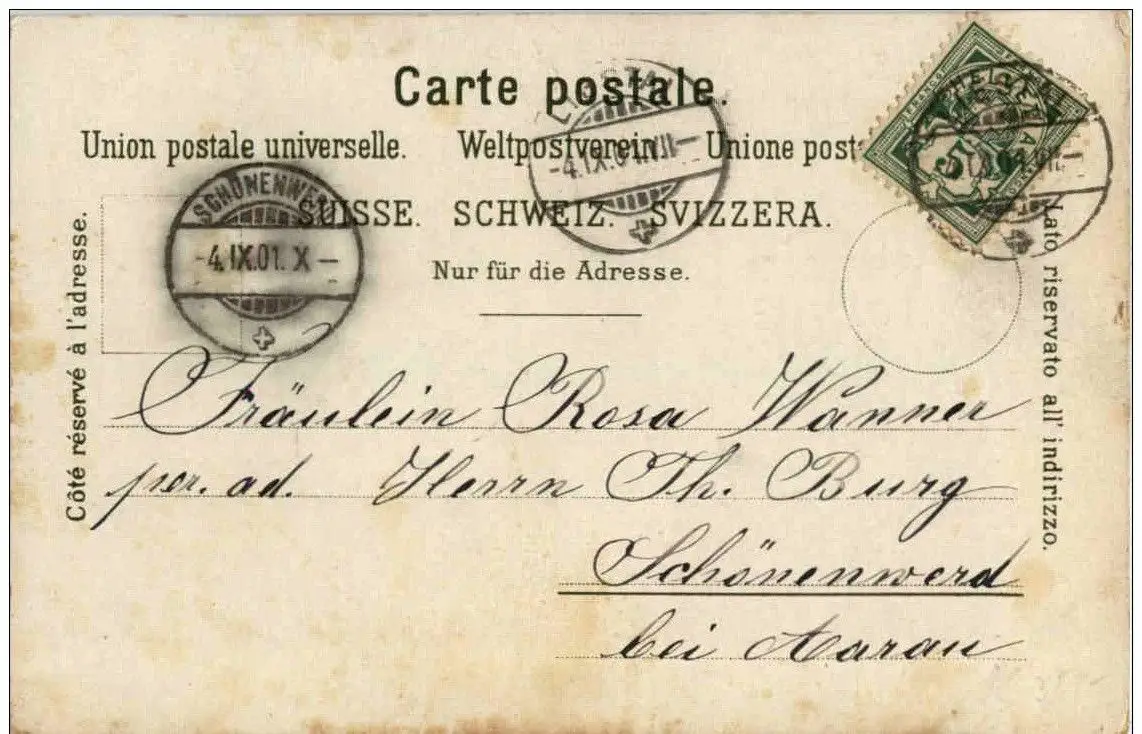 Carte postale.
Union postale universelle. Weltpostverein. Unione post
SUISSE. SCHWEIZ. SVIZZERA.
Nur für die Adresse.
Côté réservé à l'adresse.
Lato riservato all' indirizzo.
SCHÖNENWERD
-4.IX.01. X-
-4.IX.01.VII-
FRANCO
HELVETIA
5
Fräulein Rosa Wanner
per. ad. Herrn Th. Burg
Schönenwerd
bei Aarau